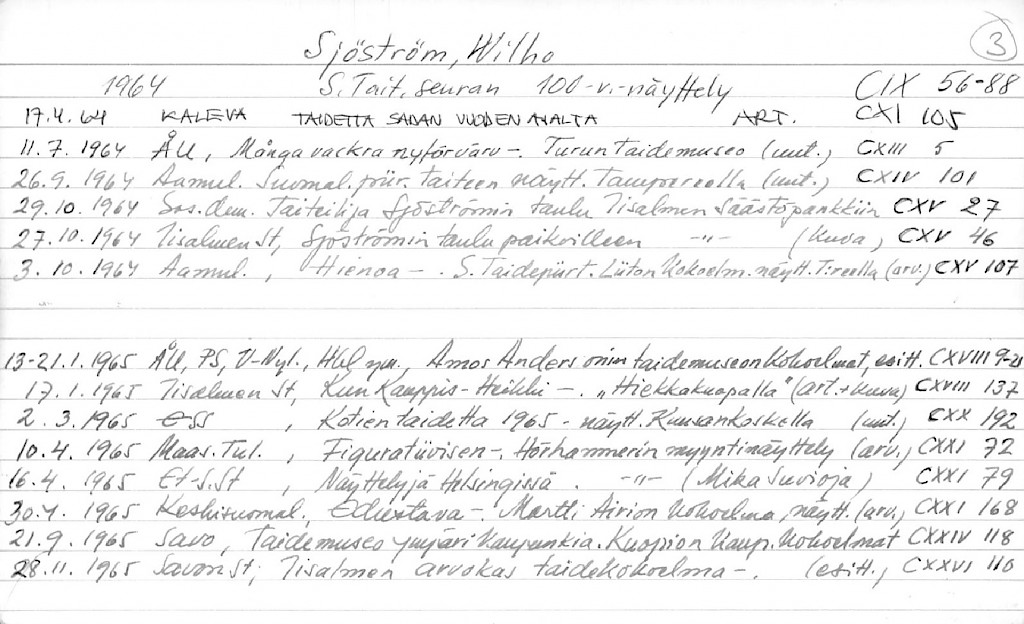 Sjöström, Wilho 3
1964 S. Tait. seuran 100-v.-näyttely CIX 56-88
17.4.64 KALEVA TAIDETTA SADAN VUODEN AJALTA ART. CXI 105
11.7.1964 ÅU, Många vackra nyförvärv-. Turun taidemuseo (uut.) CXIII 5
26.9.1964 Aamul. Suomal. piir. taiteen näytt. Tampereella (uut.) CXIV 101
29.10.1964 Sos.dem. Taiteilija Sjöströmin taulu Iisalmen Säästöpankkiin CXV 27
27.10.1964 Iisalmen St, Sjöströmin taulu paikoilleen -"- (kuva) CXV 46
3.10.1964 Aamul., Hienoa-. S. Taidepiirt. Liiton kokoelm. näytt. T:reella (arv.) CXV 107
13-21.1.1965 ÅU, PS, U-Nyl., Hbl ym., Amos Andersonin taidemuseon kokoelmat, esitt. CXVIII 9-21
17.1.1965 Iisalmen St, Kun Kauppis-Heikki-. "Hiekkakuopalla" (art.+kuva) CXVIII 137
2.3.1965 ESS, Kotien taidetta 1965-näytt. Kuusankoskella (uut.) CXX 192
10.4.1965 Maas. Tul., Figuratiivisen-, Hörhammerin myyntinäyttely (arv.) CXXI 72
16.4.1965 Et-S.St, Näyttelyjä Helsingissä. -"- (Mika Suvioja) CXXI 79
30.4.1965 Keskisuomal., Edustava-. Martti Airion kokoelma, näytt. (arv.) CXXI 168
21.9.1965 Savo, Taidemuseo ympäri kaupunkia. Kuopion kaup. kokoelmat CXXIV 118
28.11.1965 Savon St, Iisalmen arvokas taidekokoelma-. (esitt.) CXXVI 110